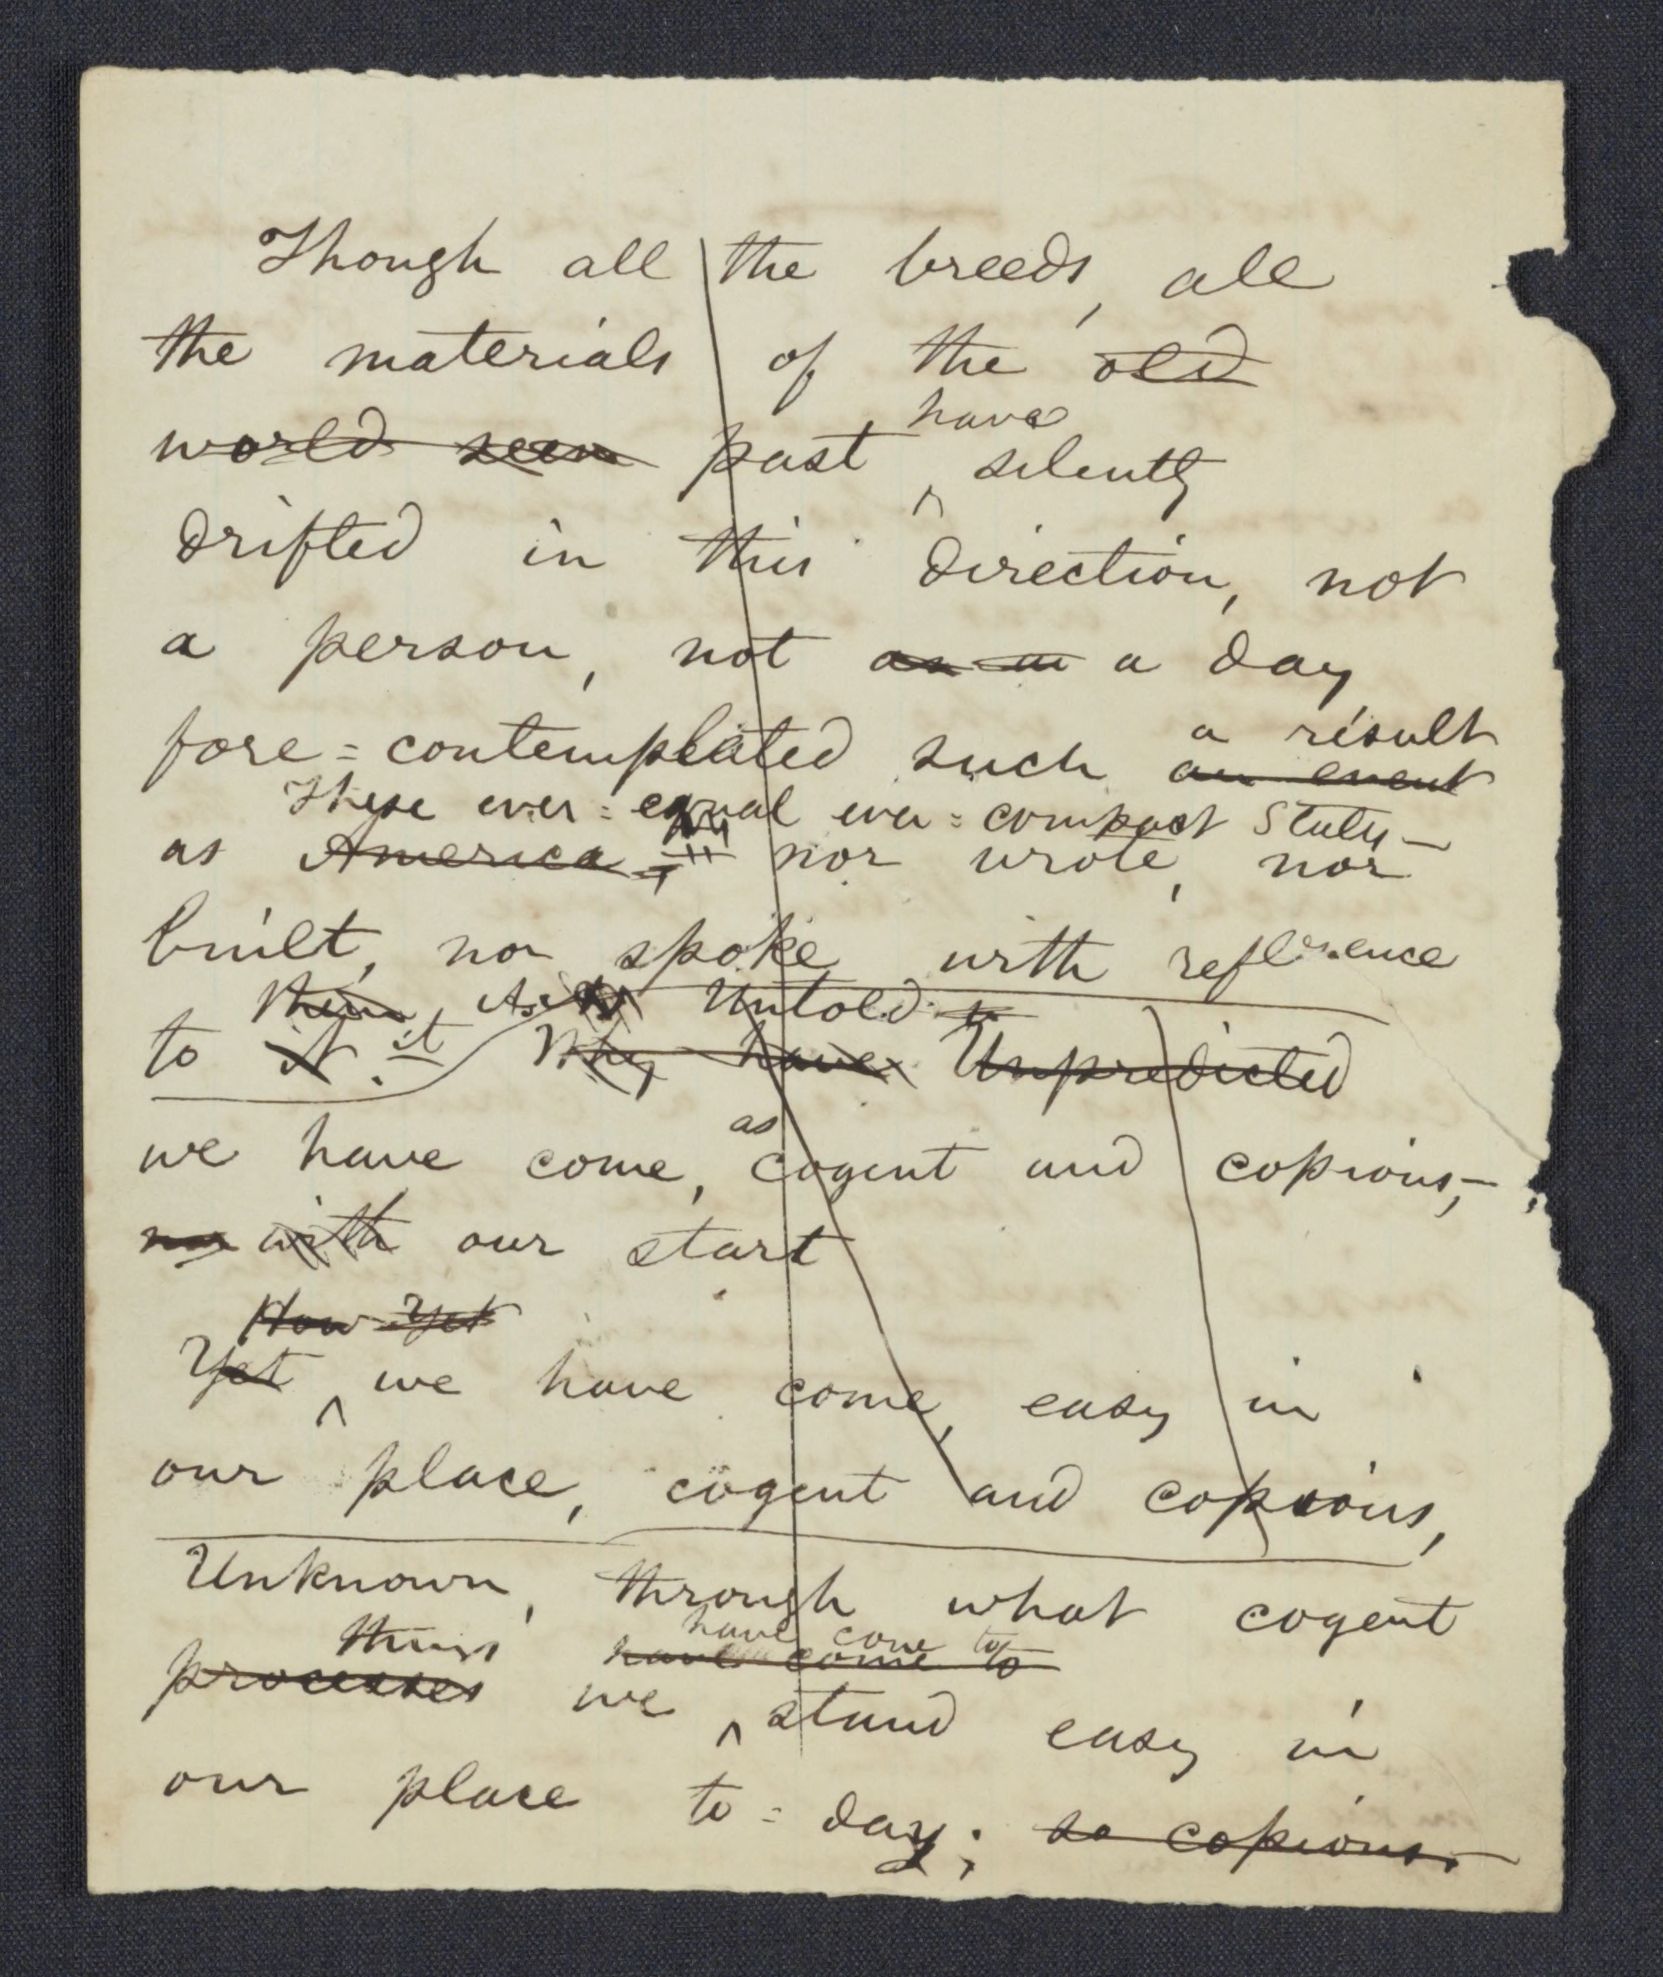 Though all the breeds, all
the materials of the old
have
world seen past silently
drifted in this direction, not
a person, not as in a day
a result
fore=contemplated such an event
These ever=equal ever=compact States—
as America nor wrote, nor
built, nor spoke with reference
them, Untold to
to it it They have Unpredicted
as
we have come, cogent and copious,—
nor with our start
How Yet
Yet we have come, easy in
our place, cogent and copious,
Unknown, through what cogent
things have come to
processes we have come to stand easy in
our place to=day; so copious.